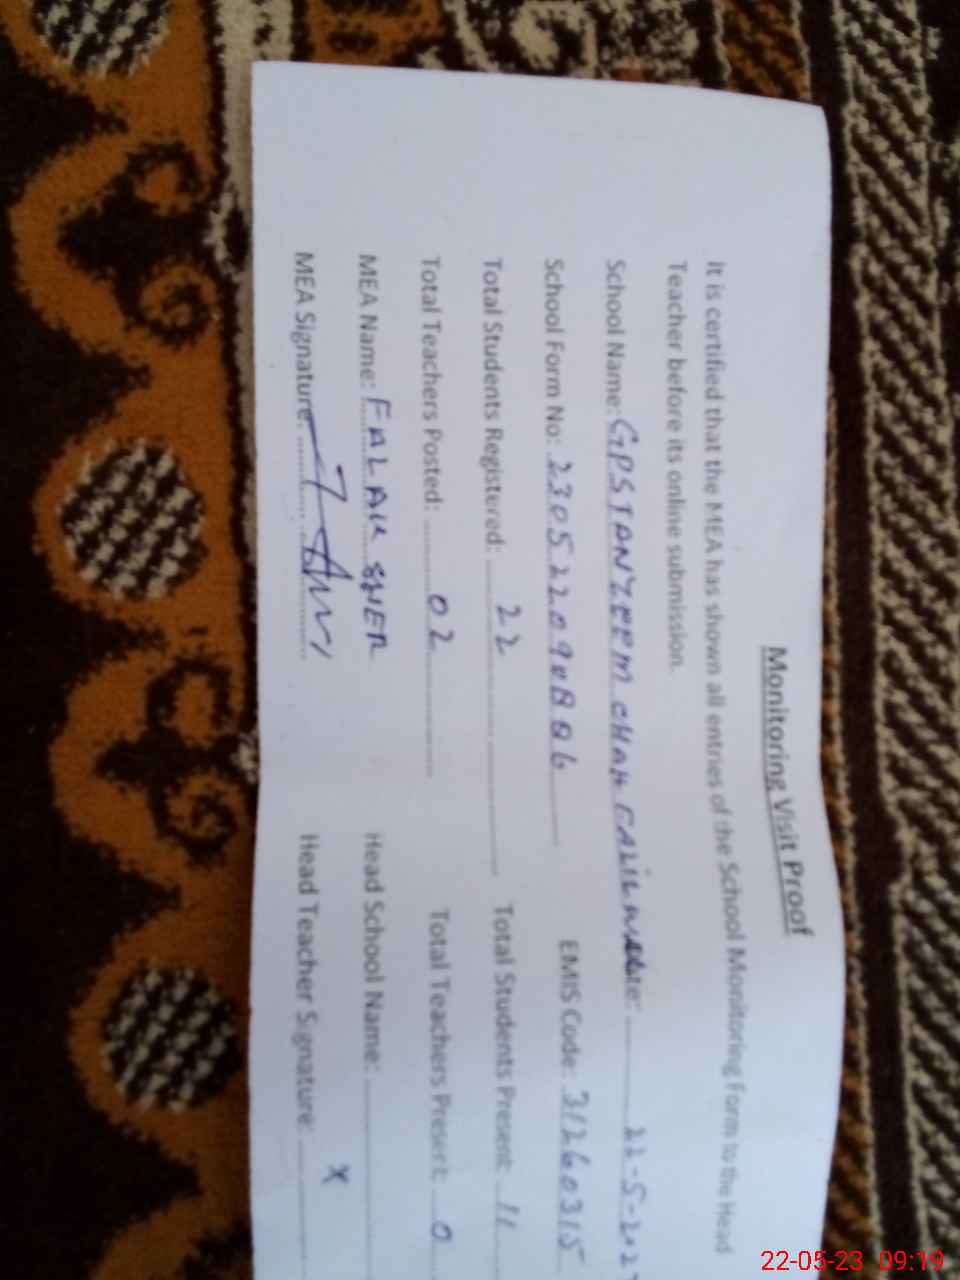 Monitoring Visit Proof
It is certified that the MEA has shown all entries of the School Monitoring Form to the Head
Teacher before its online submission.
School Name: GPS TANZEEM CHAH date: 22-5-202
School Form No: EMIS Code: 31260315
Total Students Registered: 22 Total Students Present: 11
Total Teachers Posted: 02 Total Teachers Present: 0
MEA Name: FALAK SHER Head School Name:
MEA Signature: Head Teacher Signature: x
22-05-23 09:19